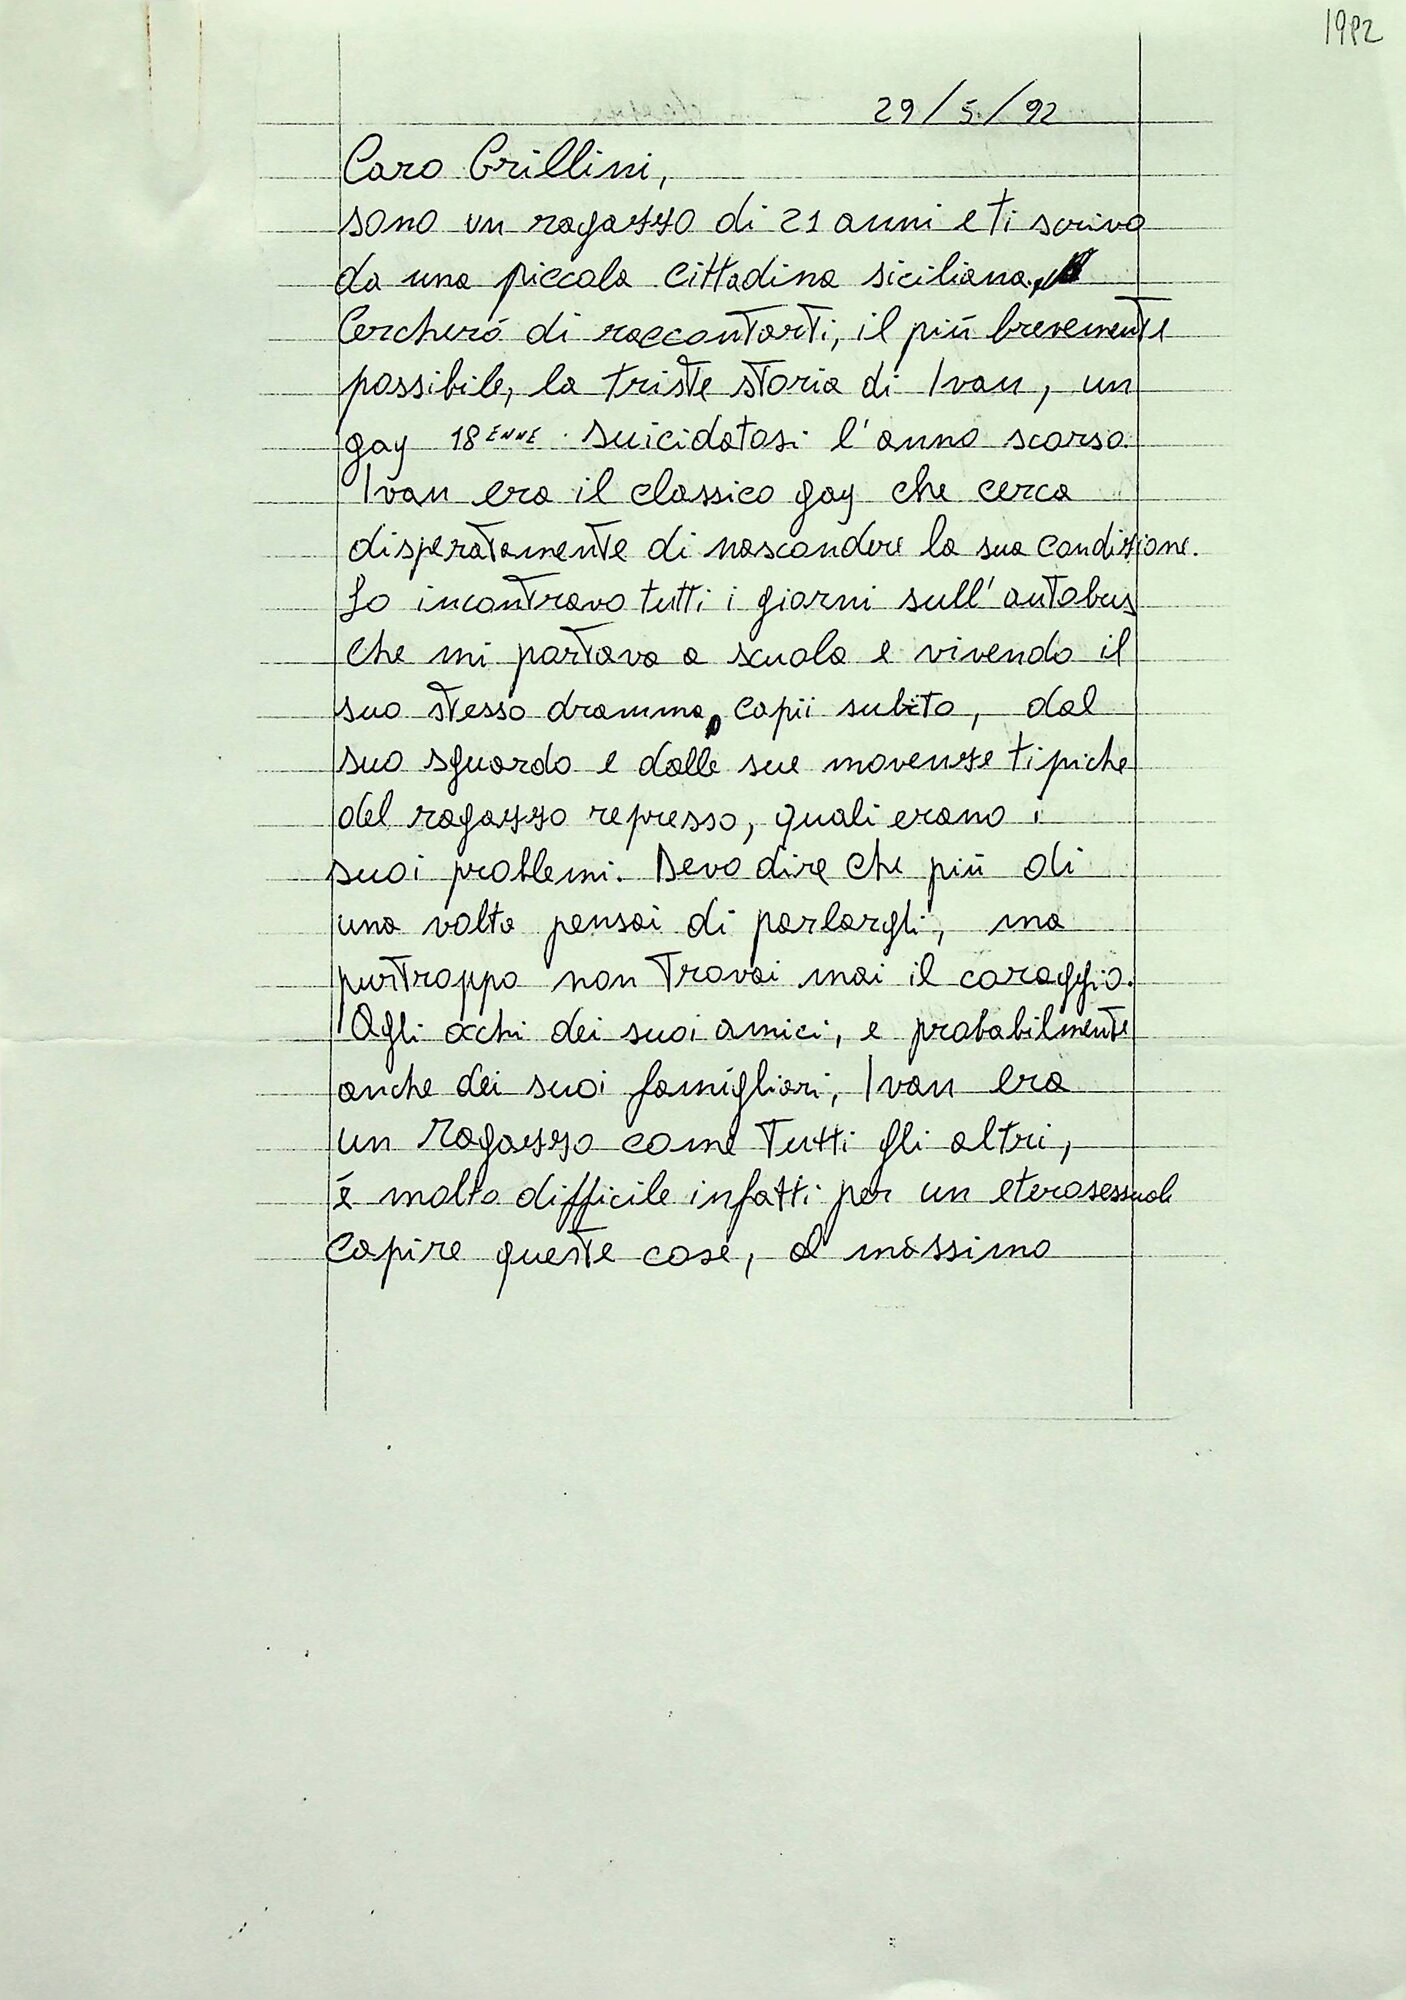 1992
29/5/92
Caro Grillini,
sono un ragazzo di 21 anni e ti scrivo
da una piccola cittadina siciliana.
Cercheró di raccontarti, il più brevemente
possibile, la triste storia di Ivan, un
gay 18ENNE suicidatosi l'anno scorso.
Ivan era il classico gay che cerca
disperatamente di nascondere la sua condizione.
Lo incontravo tutti i giorni sull'autobus
che mi portava a scuola e vivendo il
suo stesso dramma, capii subito, dal
suo sguardo e dalle sue movenze tipiche
del ragazzo represso, quali erano i
suoi problemi. Devo dire che più di
una volta pensai di parlargli, ma
purtroppo non trovai mai il coraggio.
Agli occhi dei suoi amici, e probabilmente
anche dei suoi famigliari, Ivan era
un ragazzo come tutti gli altri,
é molto difficile infatti per un eterosessuale
capire queste cose, al massimo